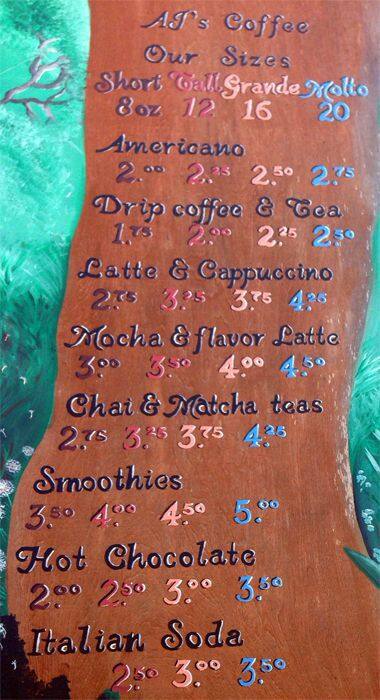 AJ's Coffee
Our Sizes
Short Tall Grande Molto
8oz 12 16 20
Americano
2.00 2.25 2.50 2.75
Drip coffee & Tea
1.75 2.00 2.25 2.50
Latte & Cappuccino
2.75 3.25 3.75 4.25
Mocha & flavor Latte
3.00 3.50 4.00 4.50
Chai & Matcha teas
2.75 3.25 3.75 4.25
Smoothies
3.50 4.00 4.50 5.00
Hot Chocolate
2.00 2.50 3.00 3.50
Italian Soda
2.50 3.00 3.50